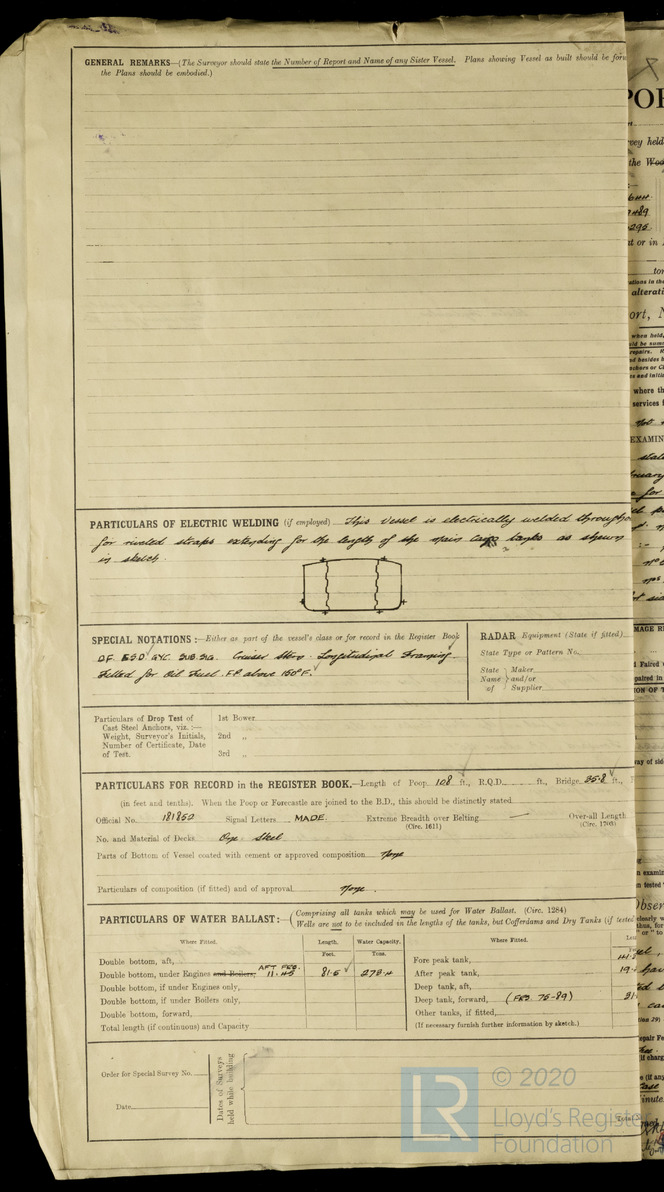 GENERAL REMARKS—(The Surveyor should state the Number of Report and Name of any Sister Vessel. Plans showing Vessel as built should be
the Plans should be embodied.)
PARTICULARS OF ELECTRIC WELDING (if employed) This vessel is electrically welded
for riveted straps extending for the length of the main cargo tanks as shown
in sketch.
SPECIAL NOTATIONS:—Either as part of the vessel's class or for record in the Register Book
DF. ESD. GYC. SUB. SIG. Cruiser Stern. Longitudinal Framing.
Fitted for Oil Fuel. F.P. above 150°F.
RADAR Equipment (State if fitted)
State Type or Pattern No.
State Name of Maker and/or Supplier
Particulars of Drop Test of
Cast Steel Anchors, viz. :—
Weight, Surveyor's Initials,
Number of Certificate, Date
of Test.
1st Bower
2nd „
3rd „
PARTICULARS FOR RECORD in the REGISTER BOOK.—Length of Poop 108 ft., R.Q.D. ft., Bridge 35.8 ft.,
(in feet and tenths). When the Poop or Forecastle are joined to the B.D., this should be distinctly stated
Official No. 181850 Signal Letters MADE. Extreme Breadth over Belting — Over-all Length
(Circ. 1611) (Circ. 1703)
No. and Material of Decks One Steel
Parts of Bottom of Vessel coated with cement or approved composition None
Particulars of composition (if fitted) and of approval None.
PARTICULARS OF WATER BALLAST:—(Comprising all tanks which may be used for Water Ballast. (Circ. 1284)
Wells are not to be included in the lengths of the tanks, but Cofferdams and Dry Tanks (if tested
Where Fitted. Length. Water Capacity. Where Fitted.
Feet. Tons.
Double bottom, aft,
Double bottom, under Engines and Boilers, AFT FRS. 11-45 81.5 273.4
Double bottom, if under Engines only,
Double bottom, if under Boilers only,
Double bottom, forward,
Total length (if continuous) and Capacity
Fore peak tank,
After peak tank,
Deep tank, aft,
Deep tank, forward, (FRS. 75-89)
Other tanks, if fitted,
(If necessary furnish further information by sketch.)
Order for Special Survey No.
Date
Dates of Surveys
held while building
© 2020
LR
Lloyd's Register
Foundation